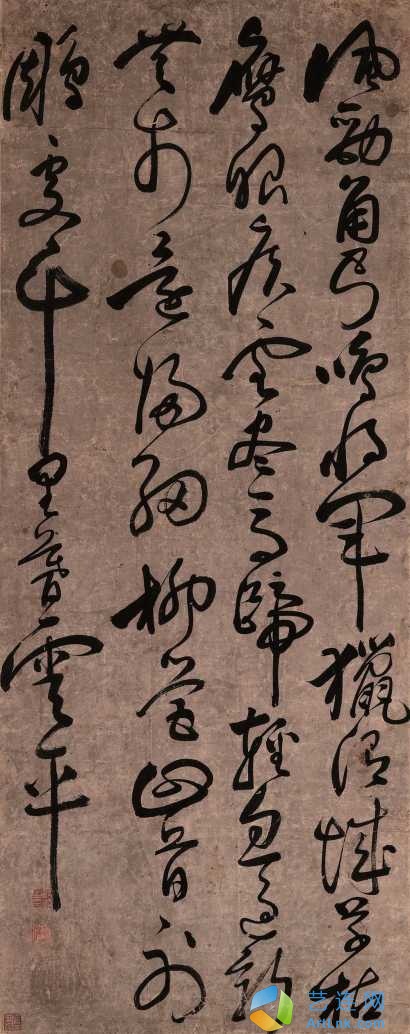 風勁角弓鳴將軍獵渭城草枯
鷹眼疾雪盡馬蹄輕忽過新
豐市還歸細柳營回首射
鵰處千里暮雲平
艺连网